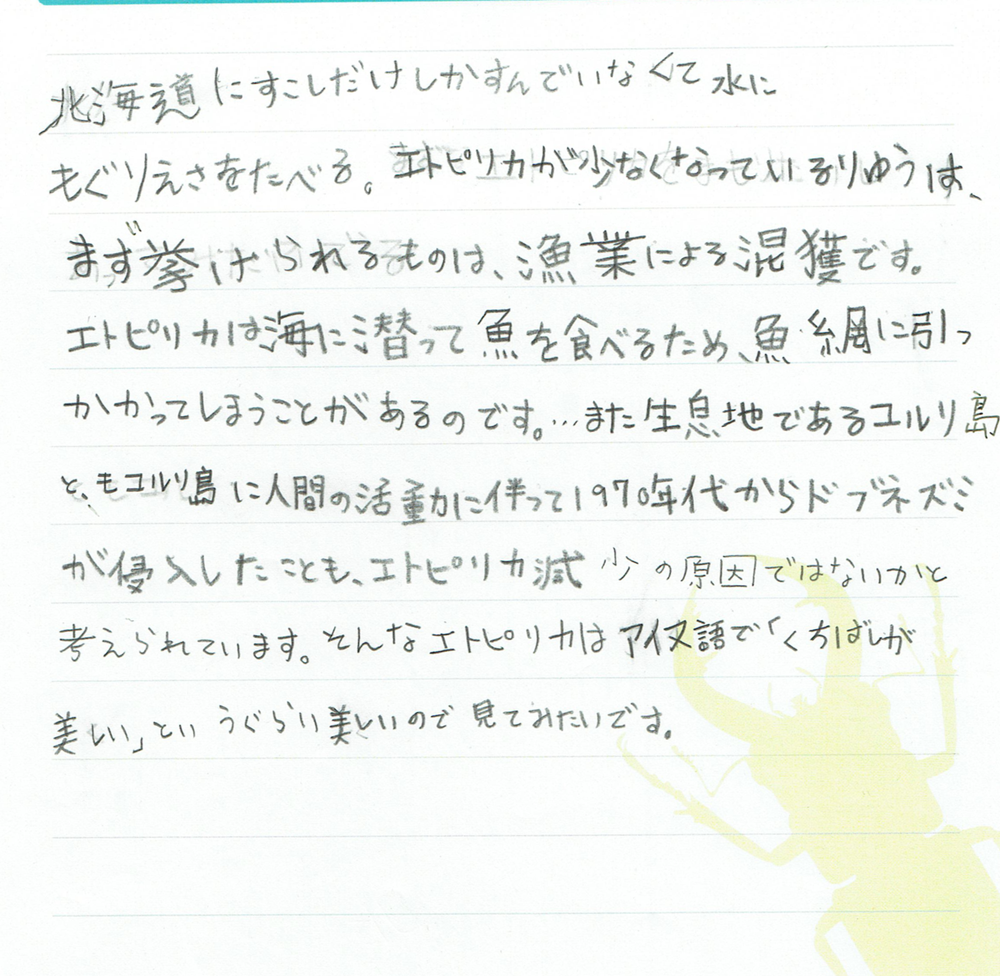 北海道にすこしだけしかすんでいなくて水に
もぐりえさをたべる。エトピリカが少なくなっているりゆうは、
まず挙げられるものは、漁業による混獲です。
エトピリカは海に潜って魚を食べるため、魚網に引っ
かかってしまうことがあるのです。…また生息地であるユルリ島
と、モユルリ島に人間の活動に伴って1970年代からドブネズミ
が侵入したことも、エトピリカ減少の原因ではないかと
考えられています。そんなエトピリカはアイヌ語で「くちばしが
美しい」というぐらい美しいので見てみたいです。